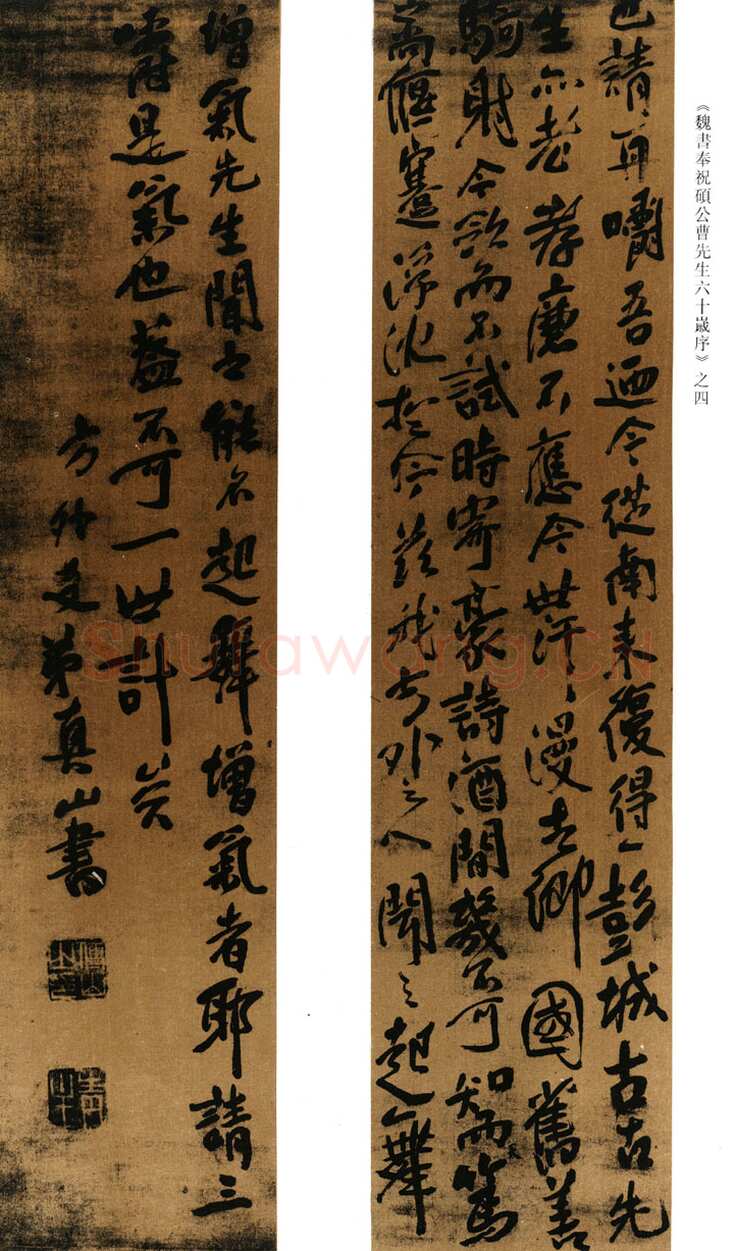 《魏書奉祝碩公曹先生六十嵗序》之四
也請、再嚼吾迺今從南来復得一彭城古古先
生亦老孝廉不應今世浮、漫去鄉國舊善
騎射今欲而不試時寄豪詩酒間幾不可知而篤
之高偃蹇浮沈於今茲我方外之人聞之起舞
增氣先生聞之能不起舞增氣者耶請三
嚼是氣也蓋不可一世計矣
方外友弟真山書
shufawang.cn